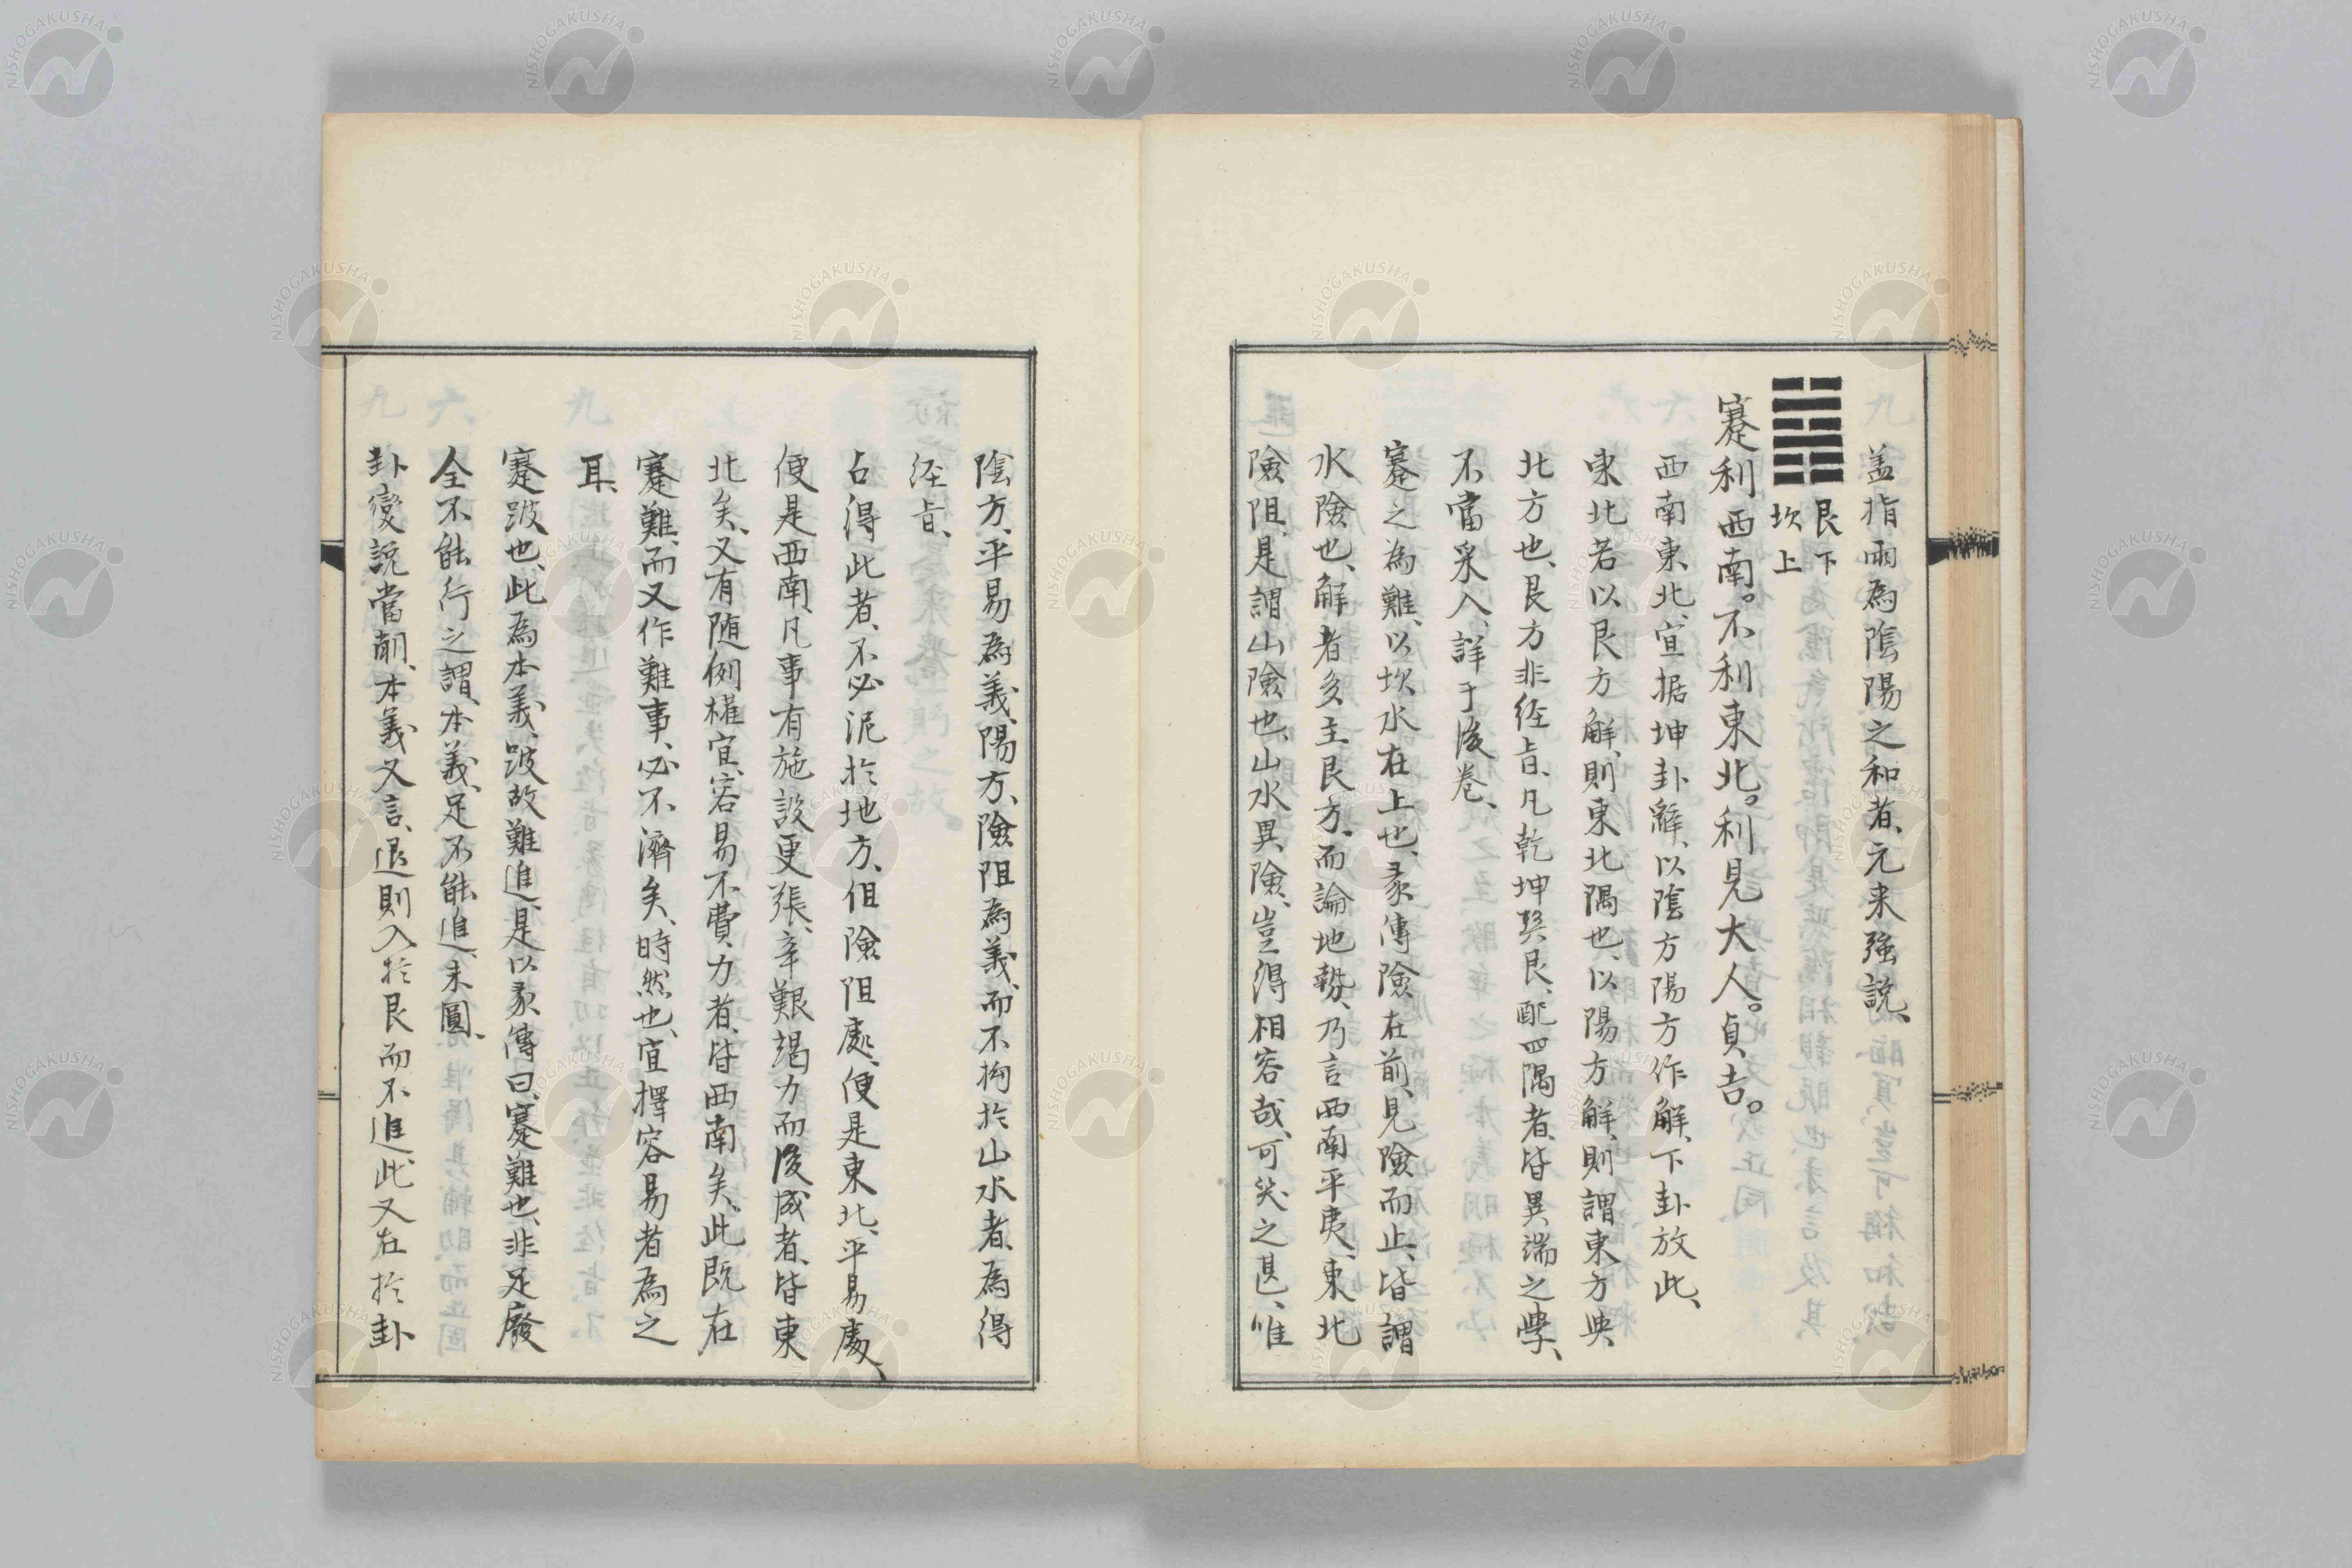 盖指雨為陰陽之和者、元来強說、
艮下
坎上
蹇利西南。不利東北。利見大人。貞吉。
西南東北、宜据坤卦辭、以陰方陽方作解、下卦放此、
東北若以艮方解、則東北隅也、以陽方解、則謂東方與
北方也、艮方非経旨、凡乾坤巽艮、配四隅者、皆異端之學、
不當采入、詳于後卷、
蹇之為難、以坎水在上也、彖傳險在前、見險而止、皆謂
水險也、解者多主艮方、而論地勢、乃言西南平夷、東北
險阻、是謂山險也、山水異險、豈得相容哉、可笑之甚、唯
陰方、平易為義、陽方、險阻為義、而不拘於山水者、為得
経旨、
占得此者、不必泥於地方、但險阻處、便是東北、平易處、
便是西南、凡事有施設更張、辛艱竭力而後成者、皆東
北矣、又有随例權宜、容易不費力者、皆西南矣、此既在
蹇難、而又作難事、必不濟矣、時然也、宜擇容易者為之
耳、
蹇跛也、此為本義、跛故難進、是以彖傳曰、蹇難也、非足廢
全不能行之謂、本義、足不能進、未圓、
卦變說當削、本義又言、退則入於艮而不進、此又在於卦
NISHOGAKUSHA